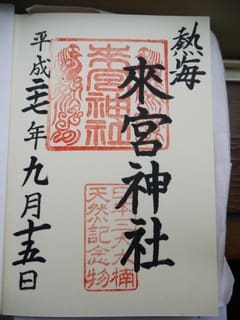 熱海
來宮神社
平成二七年九月十五日
来宮神社
日本三大楠
天然記念物